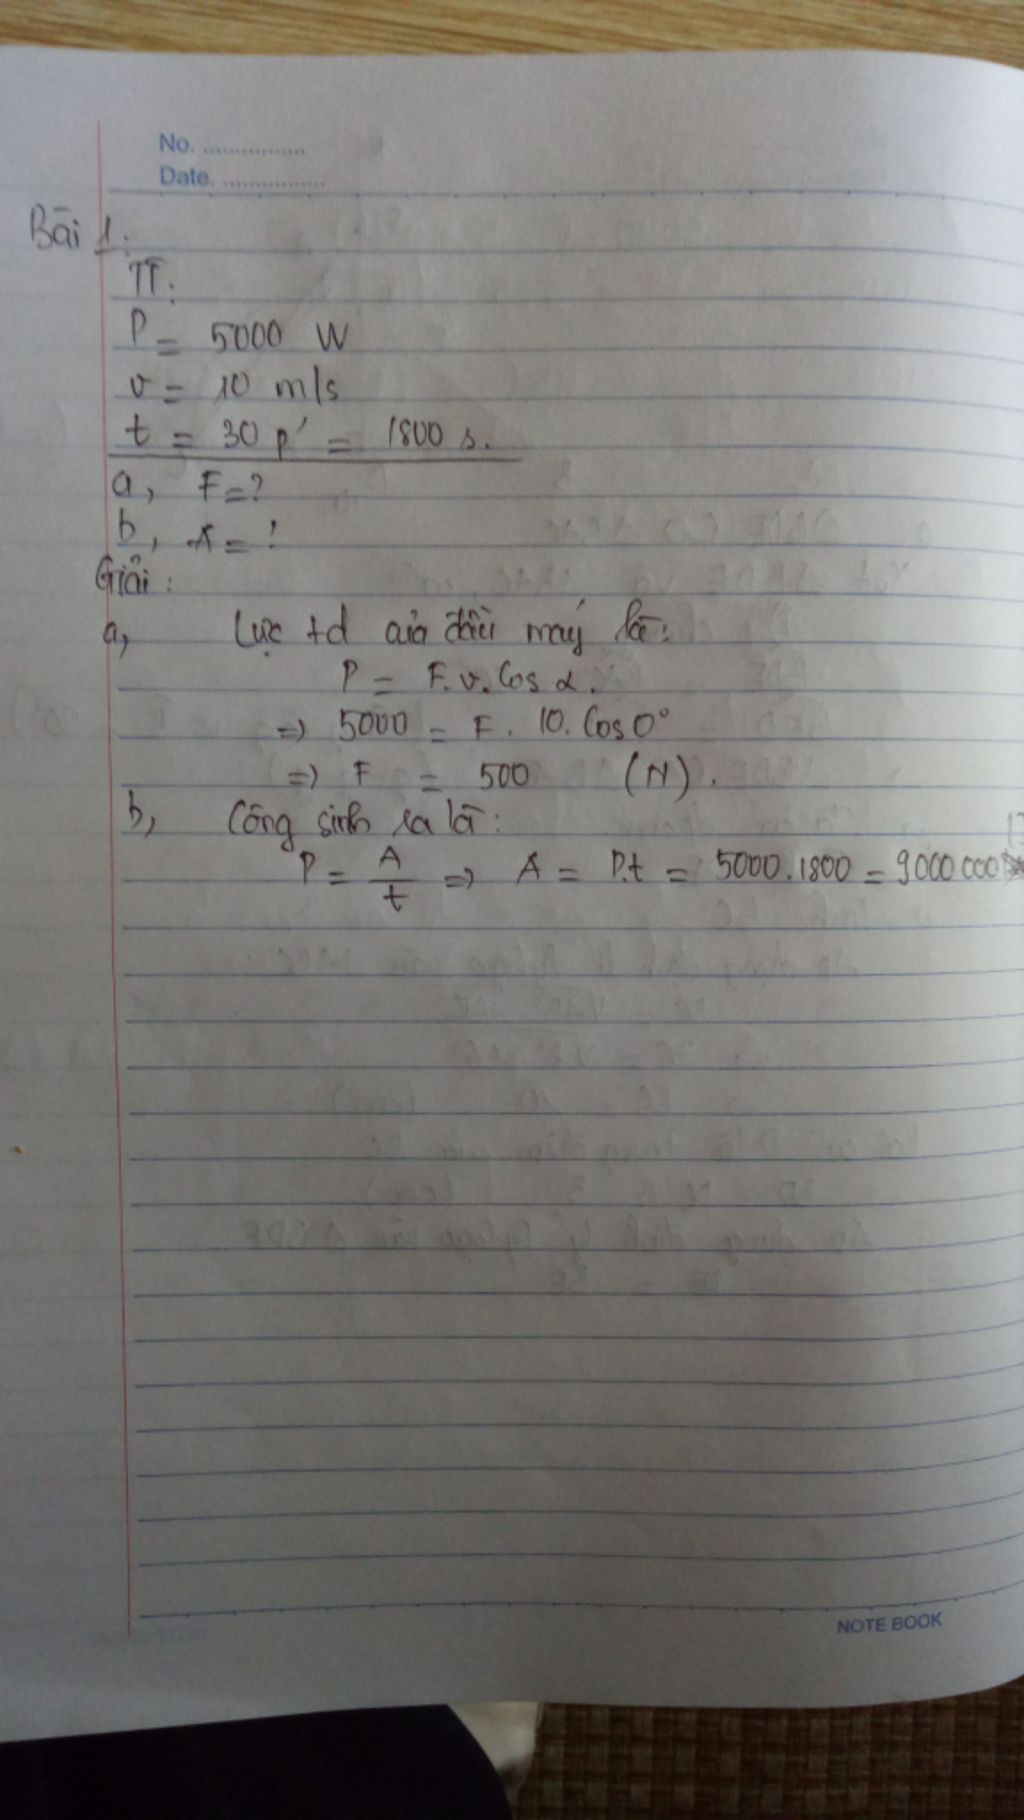 No. ................
Date. ................
Bài 1:
TT:
P = 5000 W
v = 10 m/s
t = 30 p' = 1800 s.
a, F = ?
b, A = ?
Giải:
a, Lực td của đầu máy là:
P = F.v.Cos α.
=> 5000 = F. 10. Cos 0°
=> F = 500 (N).
b, Công sinh ra là:
P = A/t => A = P.t = 5000.1800 = 9000 000
NOTE BOOK